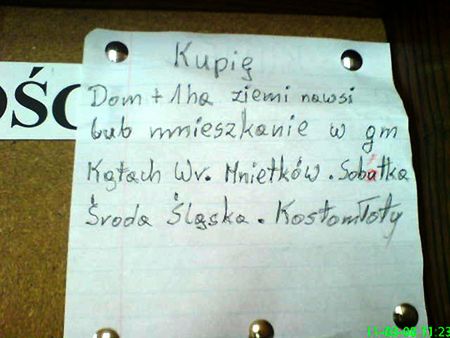 Kupię
OŚC
Dom + 1ha ziemi nawsi
lub mnieszkanie w gm
Kątach Wr. Mnietków. Sobótka
Środa Śląska. Kostomłoty